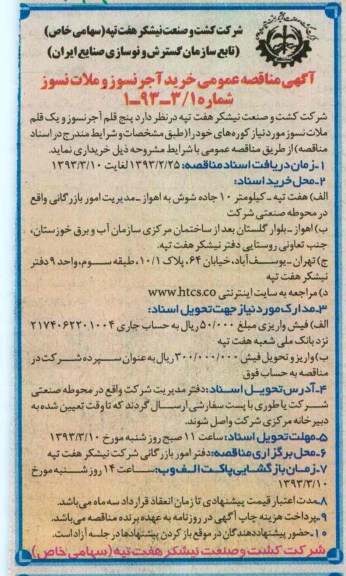 شرکت کشت و صنعت نیشکر هفت تپه (سهامی خاص)
(تابع سازمان گسترش و نوسازی صنایع ایران)
آگهی مناقصه عمومی خرید آجر نسوز و ملات نسوز
شماره ۳/۱-۹۳-۱
شرکت کشت و صنعت نیشکر هفت تپه در نظر دارد پنج قلم آجر نسوز و یک قلم
ملات نسوز مورد نیاز کوره‌های خود را (طبق مشخصات و شرایط مندرج در اسناد
مناقصه) از طریق مناقصه عمومی با شرایط مشروحه ذیل خریداری نماید.
۱- زمان دریافت اسناد مناقصه: ۱۳۹۳/۲/۲۵ لغایت ۱۳۹۳/۳/۱۰
۲- محل خرید اسناد:
الف) هفت تپه - کیلومتر ۱۰ جاده شوش به اهواز - مدیریت امور بازرگانی واقع
در محوطه صنعتی شرکت
ب) اهواز - بلوار گلستان بعد از ساختمان مرکزی سازمان آب و برق خوزستان،
جنب تعاونی روستایی دفتر نیشکر هفت تپه.
ج) تهران - یوسف‌آباد، خیابان ۶۴، پلاک ۱۰/۱، طبقه سوم، واحد ۹ دفتر
نیشکر هفت تپه
د) مراجعه به سایت اینترنتی www.htcs.co
۳- مدارک مورد نیاز جهت تحویل اسناد:
الف) فیش واریزی مبلغ ۵۰/۰۰۰ ریال به حساب جاری ۲۱۷۴۰۶۲۲۰۱۰۰۴
نزد بانک ملی شعبه هفت تپه
ب) واریز و تحویل فیش ۳۰۰/۰۰۰/۰۰۰ ریال به عنوان سپرده شرکت در
مناقصه به حساب فوق
۴- آدرس تحویل اسناد: دفتر مدیریت شرکت واقع در محوطه صنعتی
شرکت یا طوری با پست سفارشی ارسال گردند که تا وقت تعیین شده به
دبیرخانه مرکزی شرکت واصل شوند.
۵- مهلت تحویل اسناد: ساعت ۱۱ صبح روز شنبه مورخ ۱۳۹۳/۳/۱۰
۶- محل برگزاری مناقصه: دفتر امور بازرگانی شرکت نیشکر هفت تپه
۷- زمان بازگشایی پاکت الف و ب: ساعت ۱۴ روز شنبه مورخ
۱۳۹۳/۳/۱۰
۸- مدت اعتبار قیمت پیشنهادی تا زمان انعقاد قرارداد سه ماه می‌باشد.
۹- پرداخت هزینه چاپ آگهی در روزنامه به عهده برنده مناقصه می‌باشد.
۱۰- حضور پیشنهاددهندگان در موقع باز کردن پیشنهادها در جلسه آزاد است.
شرکت کشت و صنعت نیشکر هفت تپه (سهامی خاص)